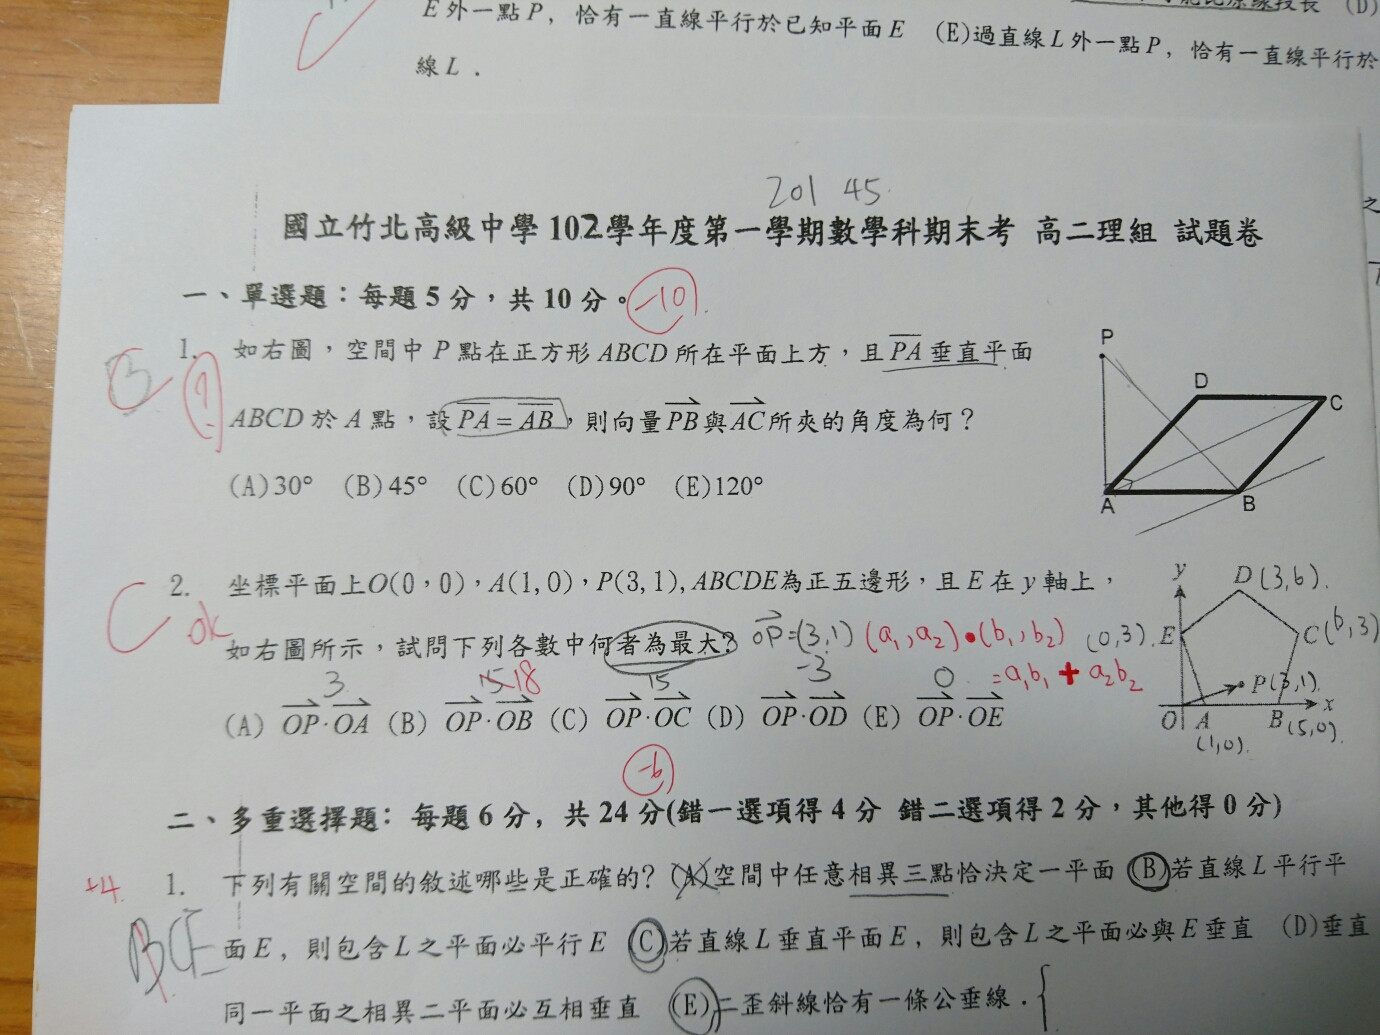 E外一點P，恰有一直線平行於已知平面E　(E)過直線L外一點P，恰有一直線平行於
線L．
201 45
國立竹北高級中學102學年度第一學期數學科期末考 高二理組 試題卷
一、單選題：每題5分，共10分。 -10
1. 如右圖，空間中P點在正方形ABCD所在平面上方，且PA垂直平面
ABCD於A點，設PA=AB，則向量PB與AC所夾的角度為何？
(A)30° (B)45° (C)60° (D)90° (E)120°
B
?
P
D
C
A
B
2. 坐標平面上O(0，0)，A(1,0)，P(3,1), ABCDE為正五邊形，且E在y軸上，
C ok
如右圖所示，試問下列各數中何者為最大? OP=(3,1) (a₁,a₂)•(b₁,b₂)
=a₁b₁+a₂b₂
3 15 18 15 -3 0
(A) OP·OA (B) OP·OB (C) OP·OC (D) OP·OD (E) OP·OE
y
D(3,6).
(0,3). E
C(6,3)
P(3,1).
O A B x
(1,0). (5,0).
-6
二、多重選擇題: 每題6分, 共24分(錯一選項得4分 錯二選項得2分，其他得0分)
+4
1. 下列有關空間的敘述哪些是正確的? (A)空間中任意相異三點恰決定一平面 (B)若直線L平行平
BCE
面E，則包含L之平面必平行E (C)若直線L垂直平面E，則包含L之平面必與E垂直 (D)垂直
同一平面之相異二平面必互相垂直 (E)二歪斜線恰有一條公垂線．